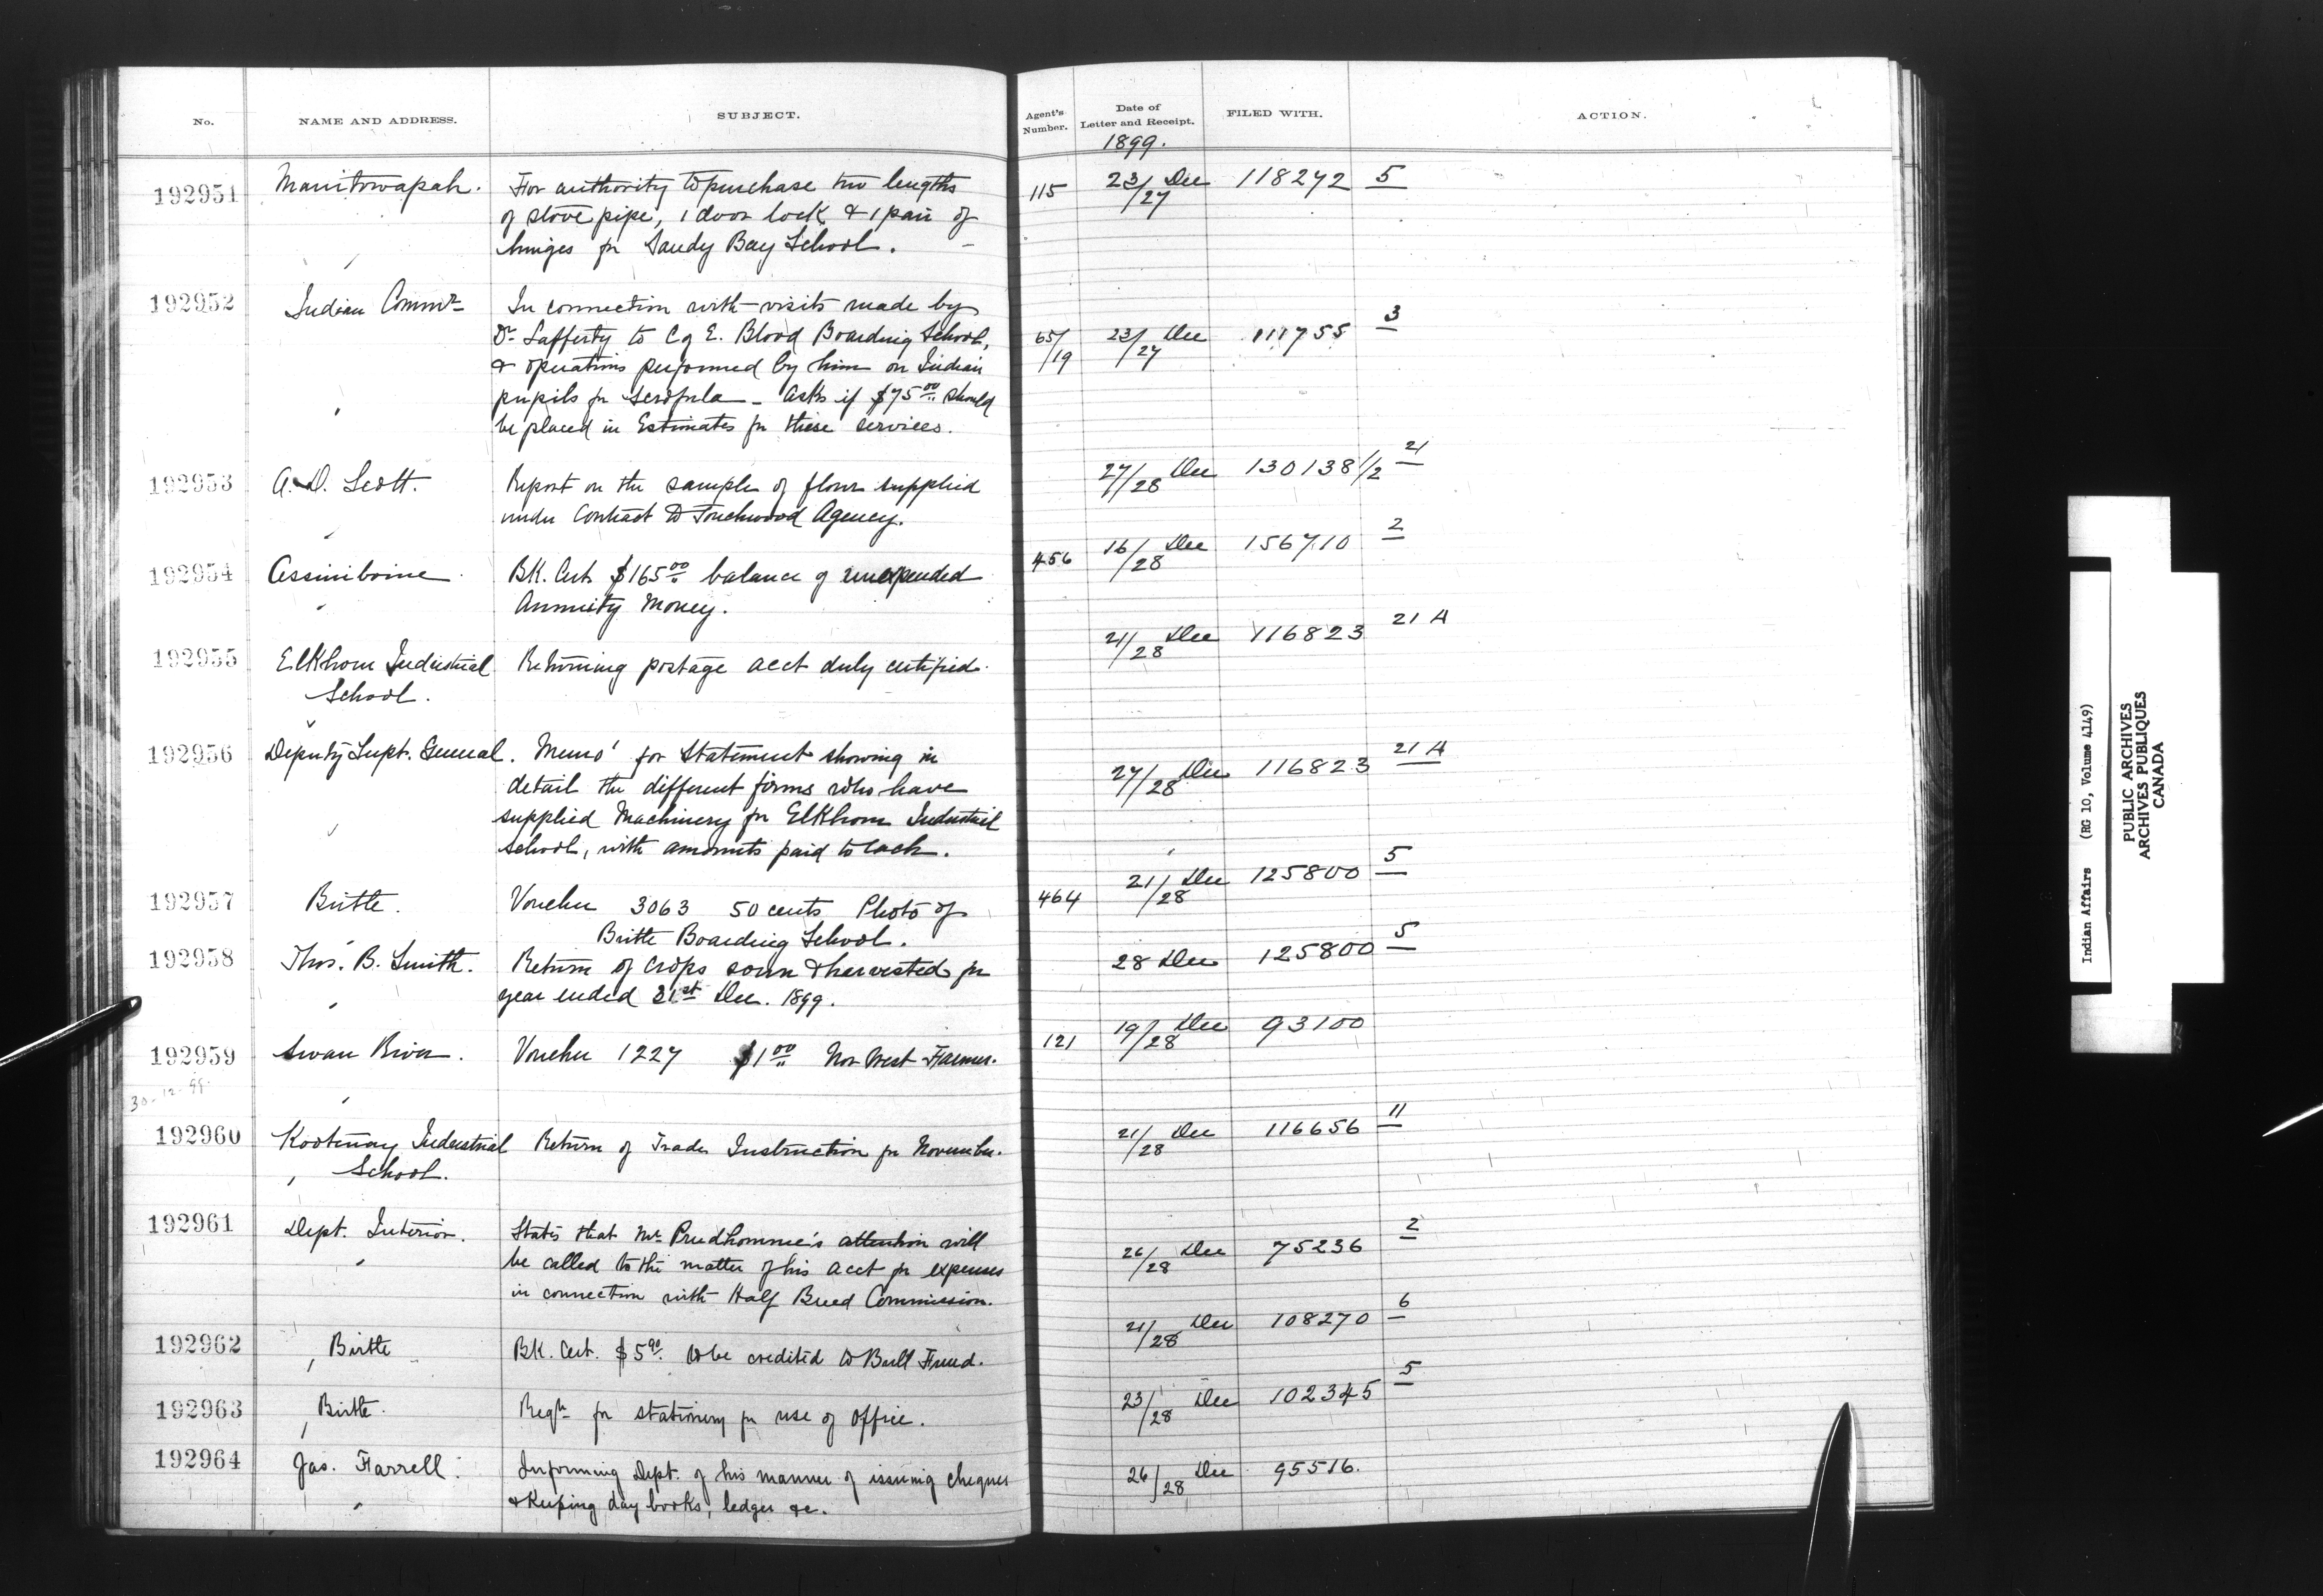 No. NAME AND ADDRESS. SUBJECT. Agent's Number. Date of Letter and Receipt. FILED WITH. ACTION.
1899.
192951 Manitowapah. For authority to purchase two lengths 115 23/27 Dec 118272 5
of stove pipe, 1 door lock & 1 pair of
hinges for Sandy Bay School.
192952 Indian Commr In connection with visits made by
Dr Lafferty to C of E. Blood Boarding School, 65/19 23/27 Dec 111755 3
& operations performed by him on Indian
pupils for scrofula - Asks if $75.00 should
be placed in Estimates for these services.
192953 A. D. Scott. Report on the sample of flour supplied 27/28 Dec 130138 1/2 21
under Contract to Touchwood Agency.
192954 Assiniboine BK. Cert. $165.00 balance of unexpended 456 16/28 Dec 156710 2
Annuity Money.
192955 Elkhorn Industrial Returning postage acct duly certified. 21/28 Dec 116823 21 A
School.
192956 Deputy Supt. General. Memo' for Statement showing in 27/28 Dec 116823 21 A
detail the different firms who have
supplied Machinery for Elkhorn Industrial
School, with amounts paid to each.
192957 Birtle. Voucher 3063 50 cents Photo of 464 21/28 Dec 125800 5
Birtle Boarding School.
192958 Thos. B. Smith. Return of crops sown & harvested for 28 Dec 125800 5
year ended 31st Dec. 1899.
192959 Swan River. Voucher 1227 $1.00 Nor West Farmer. 121 19/28 Dec 93100
30-12-99
192960 Kootenay Industrial Return of Trades Instruction for November. 21/28 Dec 116656 11
School.
192961 Dept. Interior. States that Mr Prudhomme's attention will 26/28 Dec 75236 2
be called to the matter of his acct for expenses
in connection with Half Breed Commission.
192962 Birtle BK. Cert. $5.90 to be credited to Bull Fund. 21/28 Dec 108270 6
192963 Birtle. Reqn for stationery for use of office. 23/28 Dec 102345 5
192964 Jas. Farrell. Informing Dept. of his manner of issuing cheques 26/28 Dec 95516.
& keeping day books, ledger &c.
Indian Affairs (RG 10, Volume 4149)
PUBLIC ARCHIVES
ARCHIVES PUBLIQUES
CANADA